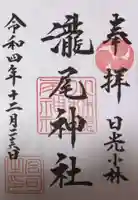 奉拝 日光小林
瀧尾神社
令和四年十二月二十三日